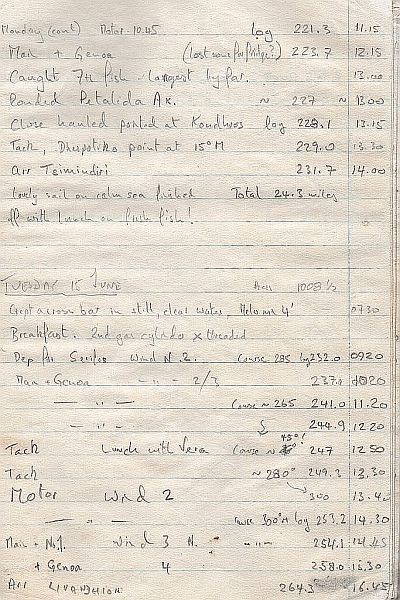 Monday (cont) Motor 10.45 log 221.3 11.15
Main + Genoa (last some for fridge?) 223.7 12.15
Caught 7th fish - largest by far.
Rounded Petalida Ak. ~ 227 ~ 13.00
Close hauled ported at Koudhros log 228.1 13.15
Tack, Dhespotiko point at 15°M 229.0 13.30
Arr Tsimindiri 231.7 14.00
Lovely sail on calm sea finished Total 24.3 miles
off with lunch on fresh fish!
TUESDAY 15 JUNE 1008½
Crept across bar in still, clear water, 4' 0730
Breakfast. 2nd gas cylinder x threaded
Dep for Serifos Wind N. 2. Course 285 log 232.0 0920
Main + Genoa - " - 2/3 237.0 1020
— " — Course ~ 265 241.0 11.20
— " — 244.9 12.20
Tack Lunch with Vera Course ~ 45°! 247 12.50
Tack ~ 280° 249.3 13.30
Motor Wind 2 300 13.40
— " — Course 300°M log 253.2 14.30
Main + No.1. Wind 3 N. - " - 254.1 14.45
+ Genoa 4 258.0 15.30
Arr LIVADHION 264.3 16.45